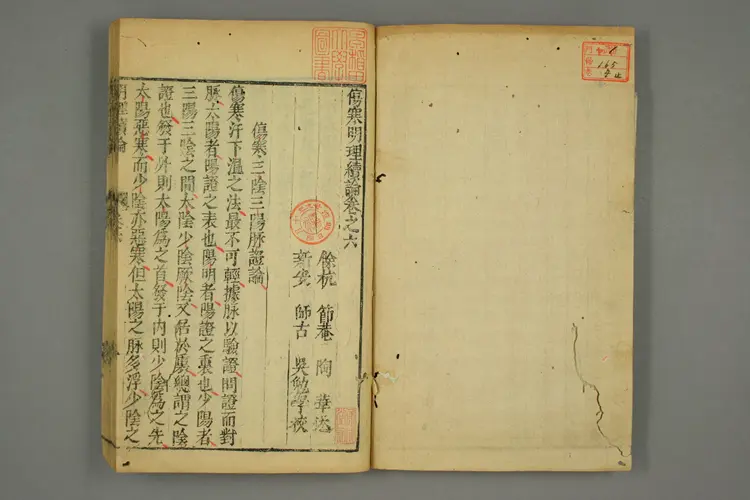 傷寒明理續論卷之六
餘杭 節菴 陶華 述
新安 師古 吳勉學 校
傷寒三陰三陽脉證論
傷寒汗下溫之法最不可輕據脉以驗證問證而對
脉太陽者陽證之表也陽明者陽證之裏也少陽者
三陽三陰之間太陰少陰厥陰又居於裏總謂之陰
證也發于外則太陽為之首發于內則少陰為之先
太陽惡寒而少陰亦惡寒但太陽之脉多浮少陰之
明理續論